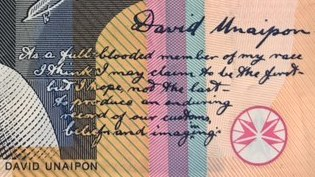 David Unaipon
As a full-blooded member of my race
I think I may claim to be the first—
but I hope, not the last—
to produce an enduring
record of our customs,
beliefs and imaginings.
DAVID UNAIPON